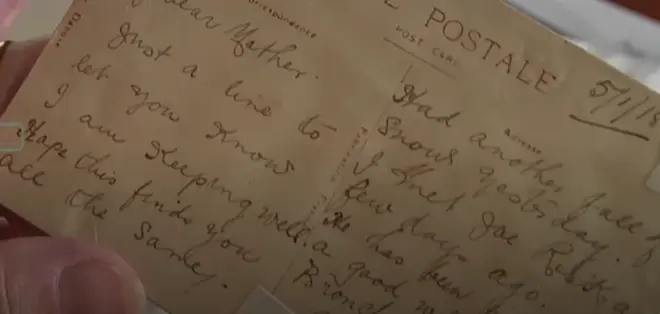 POSTALE
POST CARD
Correspondence
Adresse
5/1/18
Dear Mother.
Just a line to
let you know
I am keeping well.
Hope this finds you
all the same.
Had another fall of
snow yesterday.
I met Joe
a few days ago.
He has been
a good